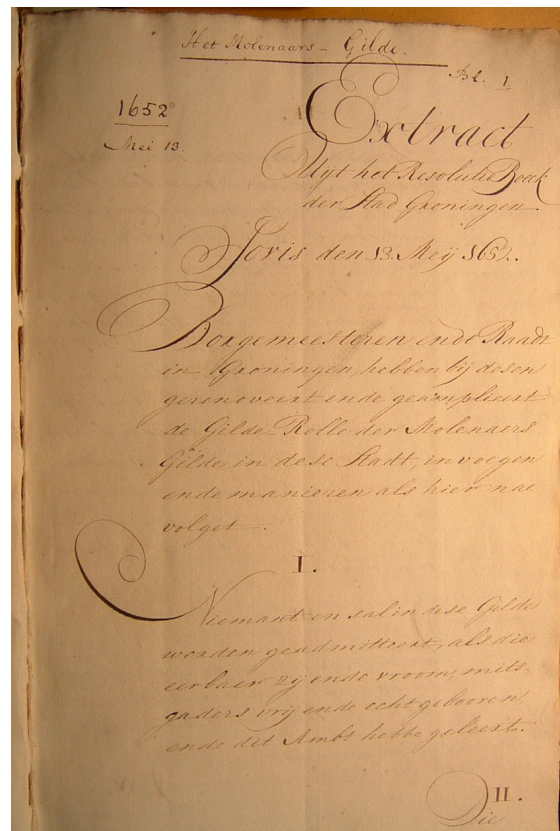 Het Molenaars - Gilde.
Bl. 1
1652
Mei 13.
Extract
Uyt het Resolutie Boeck
der Stad Groningen.
Jovis den 13. Meÿ 1652.
Borgemeesteren ende Raadt
in Groningen, hebben bij desen
gerenoveert ende geamplieert
de Gilde Rolle der Molenaers
Gilde in dese Stadt, in voegen
ende manieren als hier nae
volget.
I.
Niemant en sal in dese Gilde
worden geadmitteert, als die
eerbaer zij ende vroom, mits-
gaders vrij ende echt gebooren,
ende dit Ambt hebbe geleert.
II.
Die